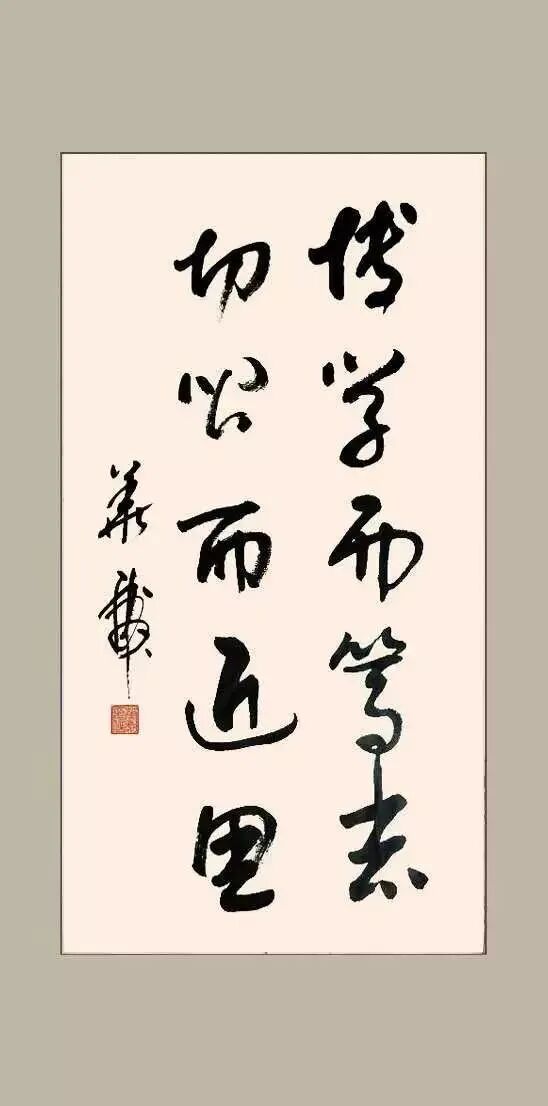 博学而笃志
切问而近思